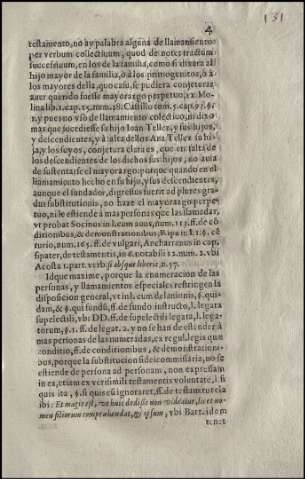 4
131
testamento, no ay palabra alguna de llamamiento
per verbum collectiuum, quod de notet tractum
successiuum, en los de la familia, como si dixera al
hijo mayor de la familia, ò à los primogenitos, ò à
los mayores della, quo casu, se pudiera conjeturar
auer querido fuesse mayorazgo perpetuo, ex Mo-
lina lib. 1. cap. 15. num. 18. Castillo tom. 5. cap. 93.
r. y puesto vso de llamamiento colectiuo, ni dixo
mas que sucediesse su hijo Iuan Tellez, y sus hijos,
y descendientes, y à falta dellos Ana Tellez su hi-
ja, y los suyos, conjetura clara es, que en falta de
los descendientes de los dichos sus hijos, no auia
de sustentarse el mayorazgo: porque quando en el
llamamiento hecho en su hijo, y sus descendientes,
aunque el fundador, digressus fuerit ad plures gra-
dus substitutionis, no haze el mayorazgo perpe-
tuo, ni le estiende à mas personas que las llamadas,
vt probat Socinus in l. cum auus, num. 115. ff. de cõ-
ditionibus, & demonstrationibus, Ripa in l. 1. §. cẽ-
turio, num. 105. ff. de vulgari, Ancharranus in cap.
ibi Acosta 1. part. verb. si absque liberis, n. 57.
Idque maxime, porque la enumeracion de las
personas, y llamamientos especiales restringen la
disposicion general, vt in l. cum de lanionis, §. qui-
dam, & §. qui fundũ, ff. de fundo instructo, l. legata
supelectili, vbi DD. ff. de supelectili legata, l. lega-
torum, §. 1. ff. de legat. 2. y no se han de estender à
mas personas de las numeradas, ex regul. legis quæ
conditio, ff. de conditionibus, & demonstrationi-
bus, porque la substitucion fideicommissaria, no se
estiende de persona ad personam, non expressam
in ea, etiam ex verisimili testamentis voluntate, l. si
quis ita, §. si quis se ignoraret, ff. de testament. tutela
ibi: Et magis est, vt huic dedisse non videatur, licet no-
men filiorum comprahendat, & ipsum, vbi Bart. idem
tenet